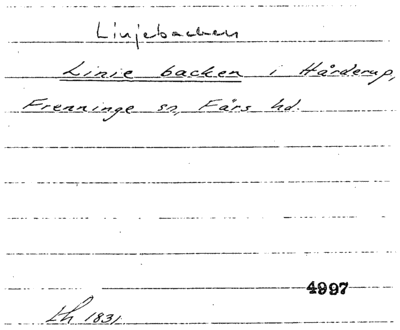 Linjebacken
Linie backen i Hårderup,
Frenninge sn, Färs hd.
4997
Lh 1831